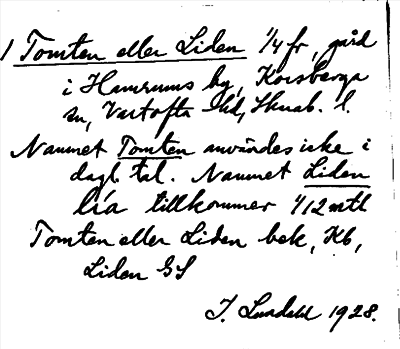 1 Tomten eller Liden 1/4 fr, gård
i Hamrums by, Korsberga
sn, Vartofta hd, Skarab. l.
Namnet Tomten användes icke i
dagl. tal. Namnet Liden
lía tillkommer 1/12 mtl
Tomten eller Liden bek, Kb,
Liden GS
J. 1928.